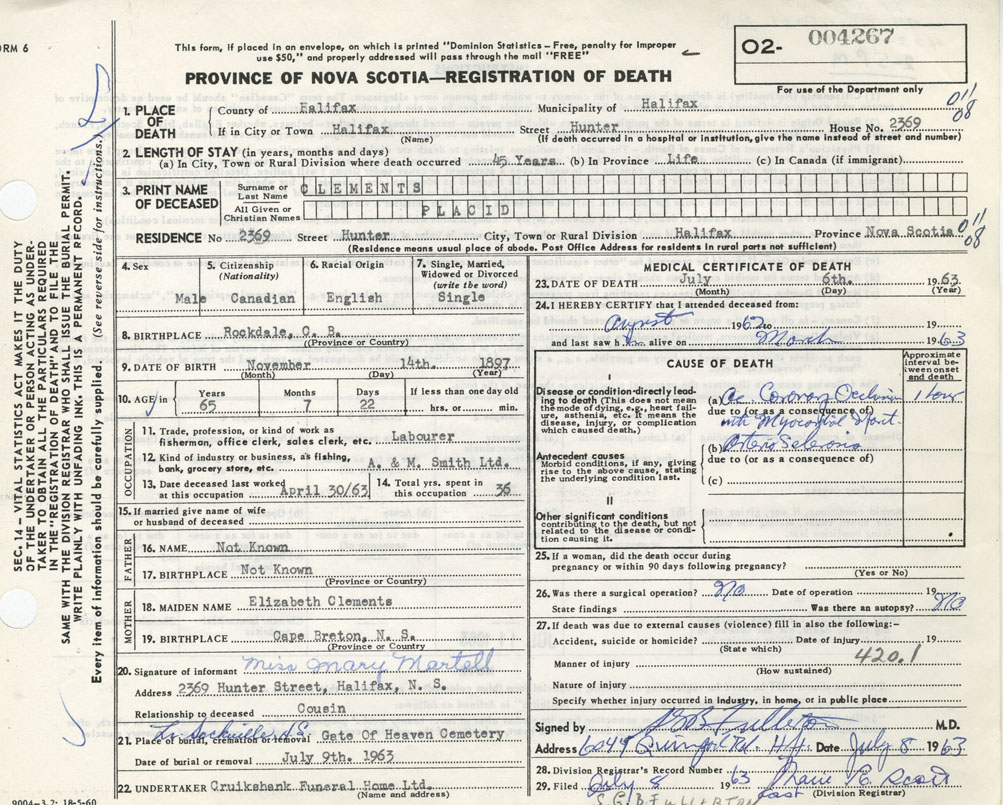 ORM 6
This form, if placed in an envelope, on which is printed "Dominion Statistics – Free, penalty for improper
use $50," and properly addressed will pass through the mail "FREE"
PROVINCE OF NOVA SCOTIA—REGISTRATION OF DEATH
O2- 004267
For use of the Department only
1. PLACE OF DEATH County of Halifax Municipality of Halifax
If in City or Town Halifax (Name) Street Hunter House No. 2369
(If death occurred in a hospital or institution, give the name instead of set and number)
011
08
2. LENGTH OF STAY (in years, months and days)
(a) In City, Town or Rural Division where death occurred 45 Years (b) In Province Life (c) In Canada (if immigrant)
3. PRINT NAME OF DECEASED Surname or Last Name CLEMENTS
All Given or Christian Names PLACID
RESIDENCE No 2369 Street Hunter City, Town or Rural Division Halifax Province Nova Scotia
(Residence means usual place of abode. Post Office Address for residents in rural parts not sufficient)
011
08
4. Sex Male
5. Citizenship (Nationality) Canadian
6. Racial Origin English
7. Single, Married, Widowed or Divorced (write the word) Single
8. BIRTHPLACE Rockdale, C. B.
(Province or Country)
9. DATE OF BIRTH November 14th. 1897
(Month) (Day) (Year)
10. AGE Years 65 Months 7 Days 22 If less than one day old hrs. or min.
OCCUPATION
11. Trade, profession, or kind of work as
fisherman, office clerk, sales clerk, etc. Labourer
12. Kind of industry or business, as fishing,
bank, grocery store, etc. A. & M. Smith Ltd.
13. Date deceased last worked
at this occupation April 30/63
14. Total yrs. spent in
this occupation 36
15. If married give name of wife
or husband of deceased
FATHER
16. NAME Not Known
17. BIRTHPLACE Not Known
(Province or Country)
MOTHER
18. MAIDEN NAME Elizabeth Clements
19. BIRTHPLACE Cape Breton, N. S.
(Province or Country
20. Signature of informant Miss Mary Martell
Address 2369 Hunter Street, Halifax, N. S.
Relationship to deceased Cousin
Sackville N.S.
21. Place of burial, cremation or removal Gate Of Heaven Cemetery
Date of burial or removal July 9th. 1963
22. UNDERTAKER Cruikshank Funeral Home Ltd.
(Name and address)
9004-3.2: 18-5-60
MEDICAL CERTIFICATE OF DEATH
23. DATE OF DEATH July 6th. 1963.
(Month) (Day) (Year)
24. I HEREBY CERTIFY that I attended deceased from:
August 1962 to 19
and last saw h alive on March 1963
CAUSE OF DEATH
Approximate interval between onset and death
I
Disease or condition directly leading to death (This does not mean
the mode of dying, e.g., heart failure, asthenia, etc. It means the
disease, injury, or complication
which caused death.)
(a) Coronary Occlusion 1 hour
due to (or as a consequence of)
with Myocardial
Antecedent causes
Morbid conditions, if any, giving
rise to the above cause, stating
the underlying condition last.
(b)
due to (or as a consequence of)
(c)
II
Other significant conditions
contributing to the death, but not
related to the disease or condition causing it.
25. If a woman, did the death occur during
pregnancy or within 90 days following pregnancy?
(Yes or No)
26. Was there a surgical operation? No Date of operation 19
State findings Was there an autopsy? No
27. If death was due to external causes (violence) fill in also the following:-
Accident, suicide or homicide? Date of injury 19
(State which)
420.1
Manner of injury
(How sustained)
Nature of injury
Specify whether injury occurred in industry, in home, or in public place
Signed by B Fullerton M.D.
Address 6049 Date July 8 1963
28. Division Registrar's Record Number
29. Filed July 8 1963 Marie E. Scott
(Division Registrar)
SEC. 14 – VITAL STATISTICS ACT MAKES IT THE DUTY
OF THE UNDERTAKER OR PERSON ACTING AS UNDER-
TAKER TO OBTAIN ALL THE PARTICULARS REQUIRED
IN THE "REGISTRATION OF DEATH" AND TO FILE THE
SAME WITH THE DIVISION REGISTRAR WHO SHALL ISSUE THE BURIAL PERMIT.
WRITE PLAINLY WITH UNFADING INK. THIS IS A PERMANENT RECORD.
Every item of information should be carefully supplied. (See reverse side for instructions.)